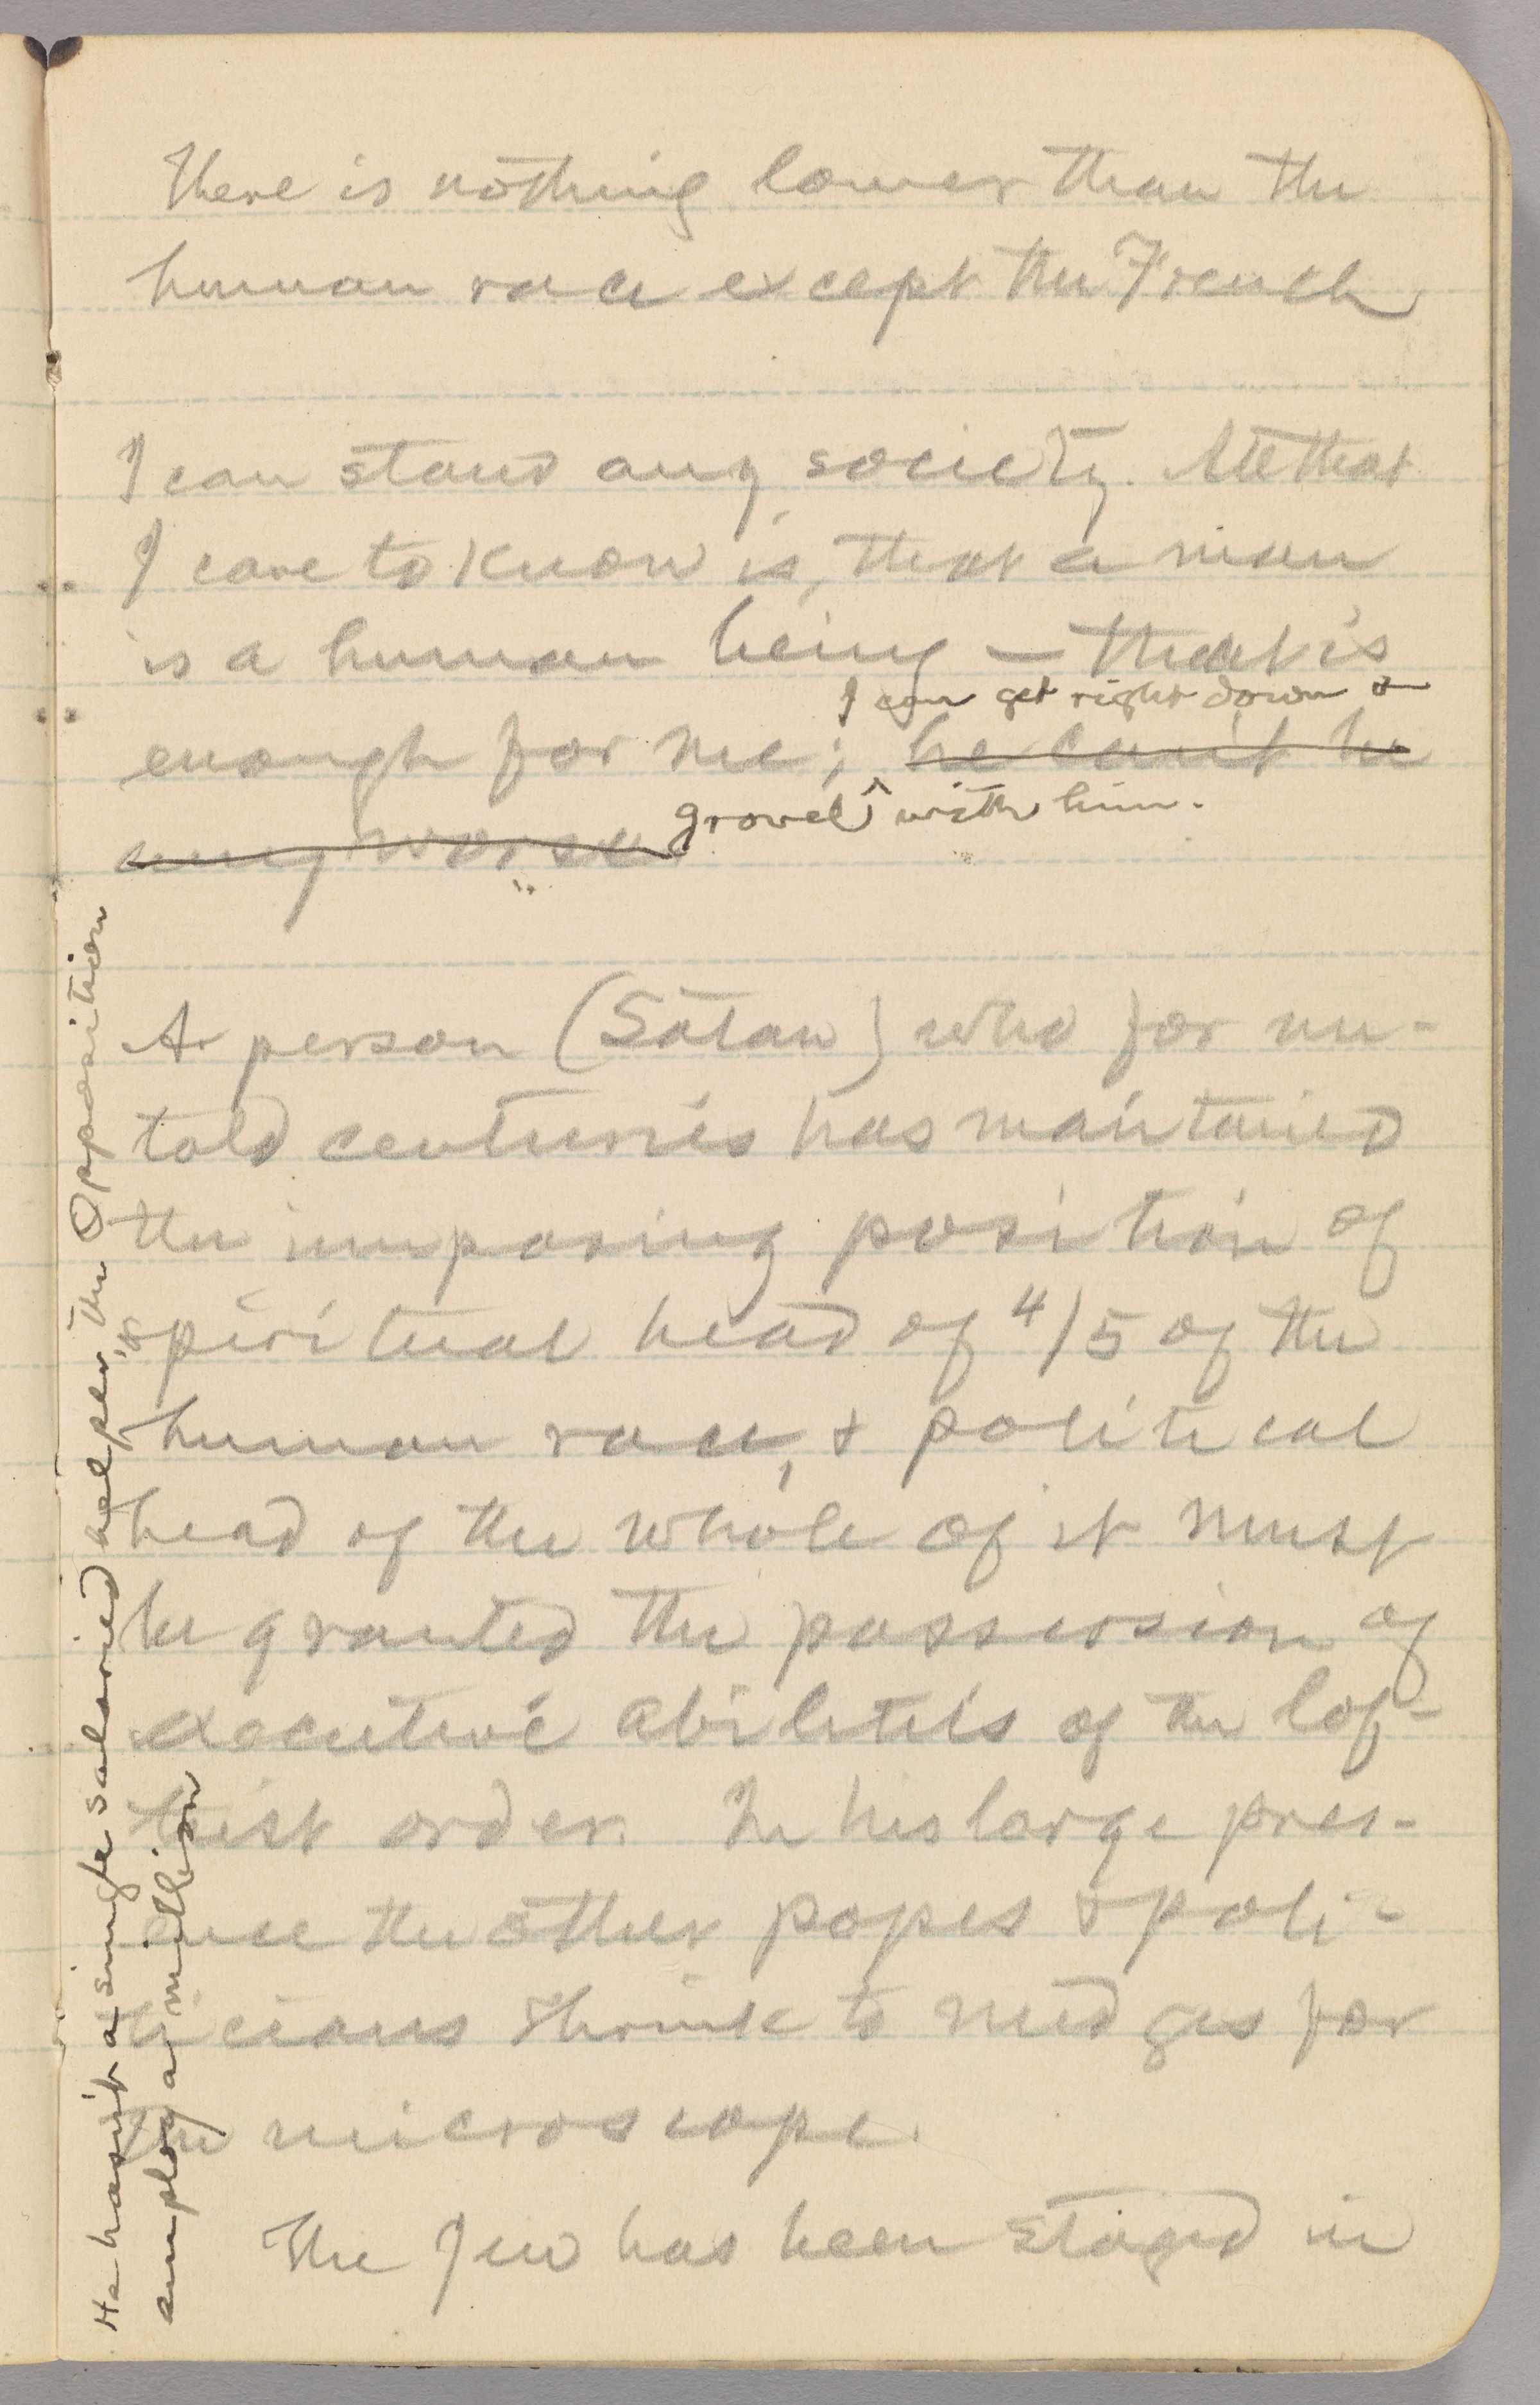 There is nothing lower than the
human race except the French
I can stand any society. All that
I care to know is, that a man
is a human being — that is
I can get right down &
enough for me; he can't be
grovel with him.
any worse.
A person (Satan) who for un-
told centuries has maintained
the imposing position of
spiritual head of 4/5 of the
human race, & political
head of the whole of it must
be granted the possession of
executive abilities of the lof-
tiest order. In his large pres-
ence the other popes & poli-
ticians shrink to midges for
the microscope.
The Jew has been staged in
He hasn't a single salaried helper, & the Opposition
employ a million